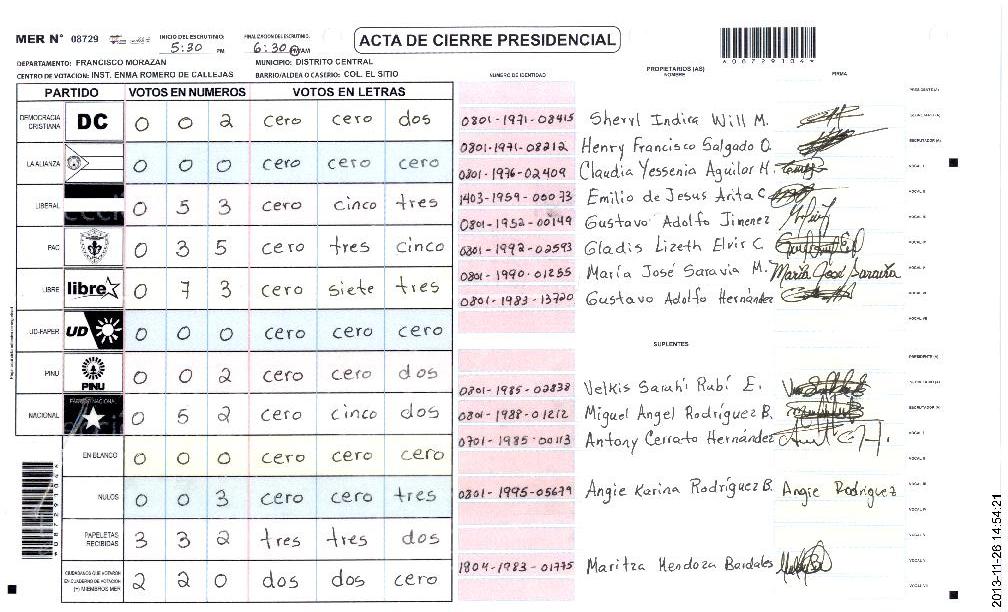 MER N° 08729 INICIO DEL ESCRUTINIO: 5:30 PM FINALIZACION DEL ESCRUTINIO: 6:30 PM/AM ACTA DE CIERRE PRESIDENCIAL
DEPARTAMENTO: FRANCISCO MORAZAN MUNICIPIO: DISTRITO CENTRAL
CENTRO DE VOTACION: INST. ENMA ROMERO DE CALLEJAS BARRIO/ALDEA O CASERIO: COL. EL SITIO
NUMERO DE IDENTIDAD PROPIETARIOS (AS) NOMBRE FIRMA
PARTIDO VOTOS EN NUMEROS VOTOS EN LETRAS
DEMOCRACIA CRISTIANA DC 0 0 2 cero cero dos
LA ALIANZA 0 0 0 cero cero cero
LIBERAL 0 5 3 cero cinco tres
PAC 0 3 5 cero tres cinco
LIBRE libre 0 7 3 cero siete tres
UD-FAPER UD 0 0 0 cero cero cero
PINU PINU 0 0 2 cero cero dos
NACIONAL PARTIDO NACIONAL 0 5 2 cero cinco dos
EN BLANCO 0 0 0 cero cero cero
NULOS 0 0 3 cero cero tres
PAPELETAS RECIBIDAS 3 3 2 tres tres dos
CIUDADANOS QUE VOTARON EN CUADERNO DE VOTACION (+) MIEMBROS MER 2 2 0 dos dos cero
PRESIDENTE (A)
0801-1971-08415 Sheryl Indira Will M. SECRETARIO (A)
0801-1971-08212 Henry Francisco Salgado O. ESCRUTADOR (A)
0801-1976-02409 Claudia Yessenia Aguilar H. VOCAL I
1403-1959-00073 Emilio de Jesus Arita C. VOCAL II
0801-1952-00149 Gustavo Adolfo Jimenez VOCAL III
0801-1992-02593 Gladis Lizeth Elvir C. VOCAL IV
0801-1990-01255 María José Saravia M. María José Saravia VOCAL V
0801-1983-13720 Gustavo Adolfo Hernández VOCAL VI
VOCAL VII
SUPLENTES
PRESIDENTE (A)
0801-1985-02838 Velkis Sarahí Rubí E. SECRETARIO (A)
0801-1988-01212 Miguel Angel Rodríguez B. ESCRUTADOR (A)
0701-1985-00113 Antony Cerrato Hernández VOCAL I
VOCAL II
0801-1995-05679 Angie Karina Rodríguez B. Angie Rodriguez VOCAL III
VOCAL IV
1804-1983-01775 Maritza Mendoza Bardales VOCAL V
2013-11-26 14:54:21